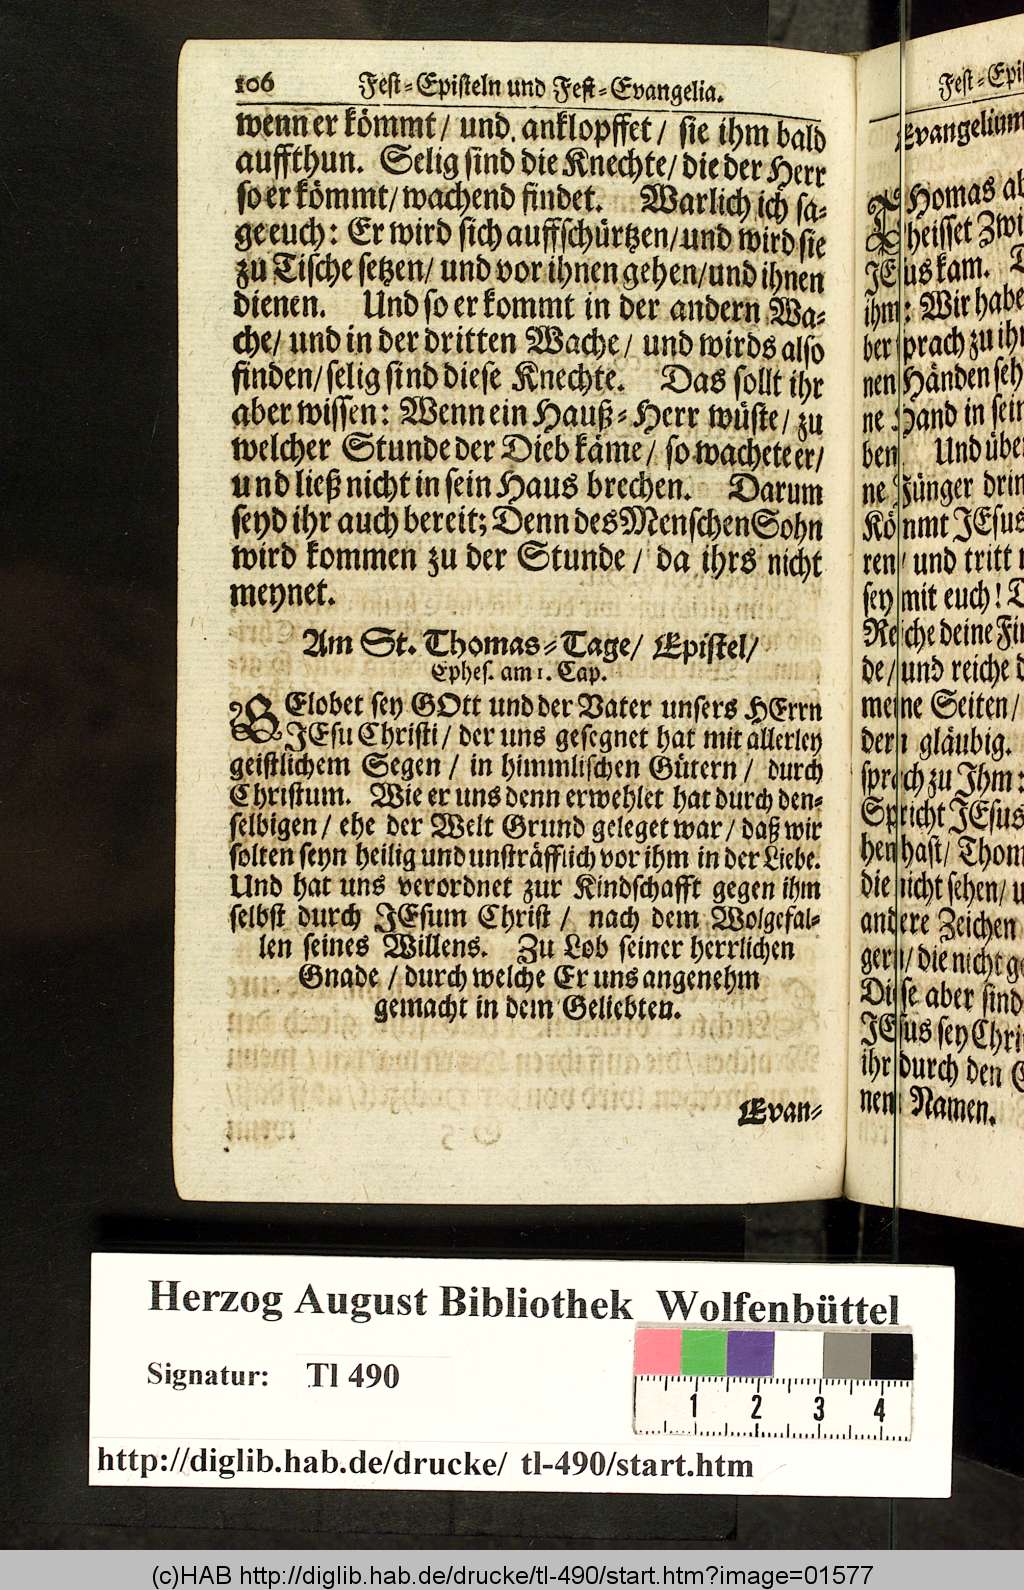 106 Fest-Episteln und Fest-Evangelia.
wenn er kömmt/ und anklopffet/ sie ihm bald
auffthun. Selig sind die Knechte/ die der Herr
so er kömmt/ wachend findet. Warlich ich sa-
ge euch: Er wird sich auffschürtzen/ und wird sie
zu Tische setzen/ und vor ihnen gehen/ und ihnen
dienen. Und so er kommt in der andern Wa-
che/ und in der dritten Wache/ und wirds also
finden/ selig sind diese Knechte. Das sollt ihr
aber wissen: Wenn ein Hauß-Herr wüste/ zu
welcher Stunde der Dieb käme/ so wachete er/
und ließ nicht in sein Haus brechen. Darum
seyd ihr auch bereit; Denn des Menschen Sohn
wird kommen zu der Stunde/ da ihrs nicht
meynet.
Am St. Thomas-Tage/ Epistel/
Ephes. am 1. Cap.
GElobet sey GOtt und der Vater unsers HErrn
JEsu Christi/ der uns gesegnet hat mit allerley
geistlichem Segen/ in himmlischen Gütern/ durch
Christum. Wie er uns denn erwehlet hat durch den-
selbigen/ ehe der Welt Grund geleget war/ daß wir
solten seyn heilig und unsträfflich vor ihm in der Liebe.
Und hat uns verordnet zur Kindschafft gegen ihm
selbst durch JEsum Christ/ nach dem Wolgefal-
len seines Willens. Zu Lob seiner herrlichen
Gnade/ durch welche Er uns angenehm
gemacht in dem Geliebten.
Evan-
Fest-Epis
Evangelium
THomas ab
heisset Zwi
JEsus kam.
ihm: Wir habe
ber sprach zu ih
nen Händen seh
ne Hand in sein
ben. Und über
ne Jünger drin
Kömmt JEsus
ren/ und tritt
sey mit euch!
Reiche deine Fin
de/ und reiche d
meine Seiten/
dern gläubig.
sprach zu Ihm:
Spricht JEsus
hen hast/ Thom
die nicht sehen/ u
andere Zeichen
gern/ die nicht ge
Diese aber sind
JEsus sey Chri
ihr durch den
nen Namen.
Herzog August Bibliothek Wolfenbüttel
Signatur: Tl 490
1 2 3 4
http://diglib.hab.de/drucke/ tl-490/start.htm
(c)HAB http://diglib.hab.de/drucke/tl-490/start.htm?image=01577